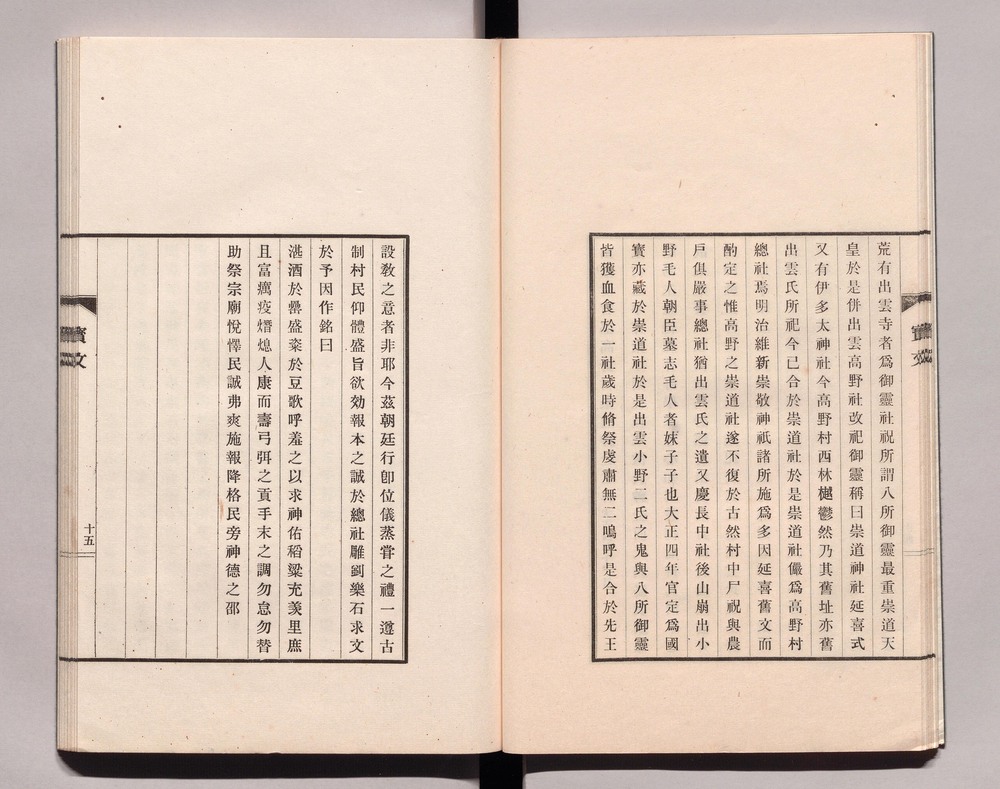 荒有出雲寺者爲御靈社祝所謂八所御靈最重崇道天
皇於是併出雲高野社改祀御靈稱曰崇道神社延喜式
又有伊多太神社今高野村西林樾鬱然乃其舊址亦舊
出雲氏所祀今已合於崇道社於是崇道社儼爲高野村
總社焉明治維新崇敬神祇諸所施爲多因延喜舊文而
酌定之惟高野之崇道社遂不復於古然村中尸祝與農
戸俱嚴事總社猶出雲氏之遺又慶長中社後山崩出小
野毛人朝臣墓志毛人者妹子子也大正四年官定爲國
寶亦藏於崇道社於是出雲小野二氏之鬼與八所御靈
皆獲血食於一社歲時脩祭虔肅無二嗚呼是合於先王
設教之意者非耶今茲朝廷行卽位儀蒸甞之禮一遵古
制村民仰體盛旨欲効報本之誠於總社雕劉樂石求文
於予因作銘曰
湛酒於罍盛粢於豆歌呼羞之以求神佑稻粱充羨里庶
且富癘疫熸熄人康而壽弓弭之貢手末之調勿怠勿替
助祭宗廟悅懌民誠弗爽施報降格民旁神德之邵
十五